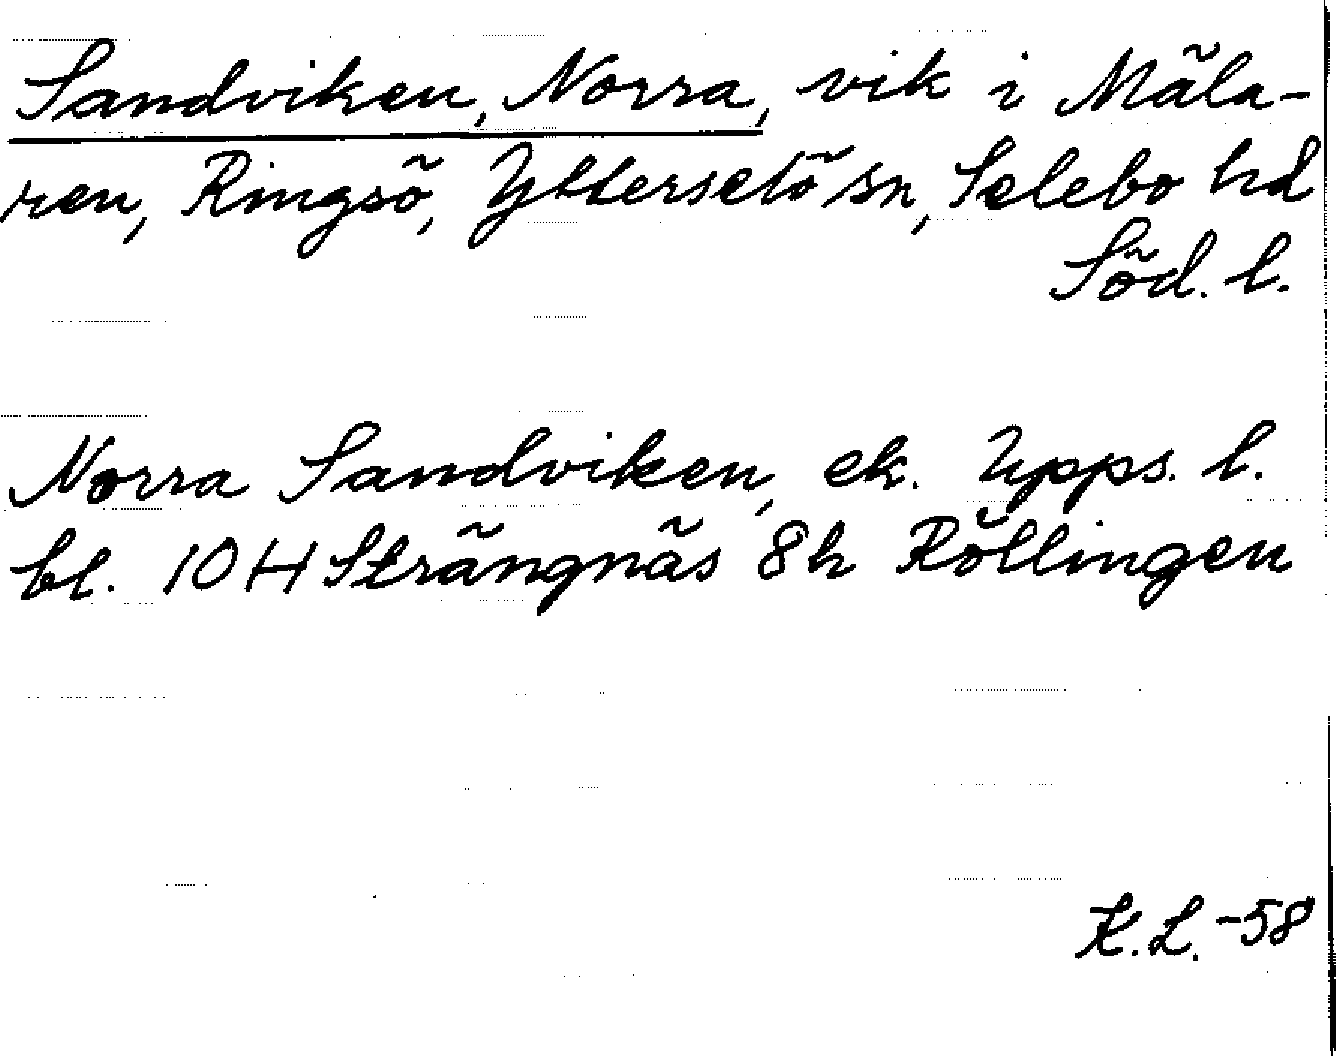 Sandviken, Norra, vik i Mäla-
ren, Ringsö, Ytterselö sn, Selebo hd
Söd. l.
Norra Sandviken, ek. Upps. l.
bl. 10 H Strängnäs 8h Röllingen
K.L. -58